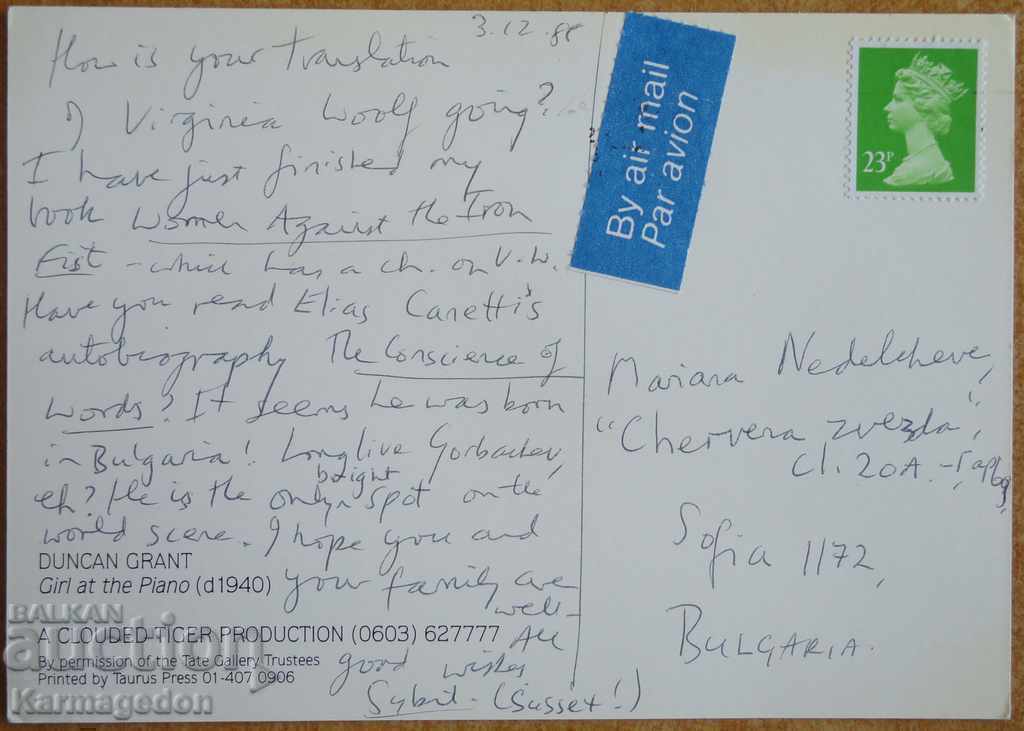 3.12.88
How is your translation
of Virginia Woolf going?
I have just finished my
book Women Against the Iron
Fist - which has a ch. on V.W.
Have you read Elias Canetti's
autobiography The Conscience of
Words? It seems he was born
in Bulgaria! Long live Gorbachev,
eh? He is the only bright spot on the
world scene. I hope you and
your family are
well -
All
good wishes
Sybil - (Sussex!)
DUNCAN GRANT
Girl at the Piano (d1940)
A CLOUDED-TIGER PRODUCTION (0603) 627777
By permission of the Tate Gallery Trustees
Printed by Taurus Press 01-407 0906
By air mail
Par avion
23P
Mariana Nedelcheve,
"Chervena zvezda",
Cl. 20A.
Sofia 1172,
BULGARIA.
BALKAN
auction
Karmagedon